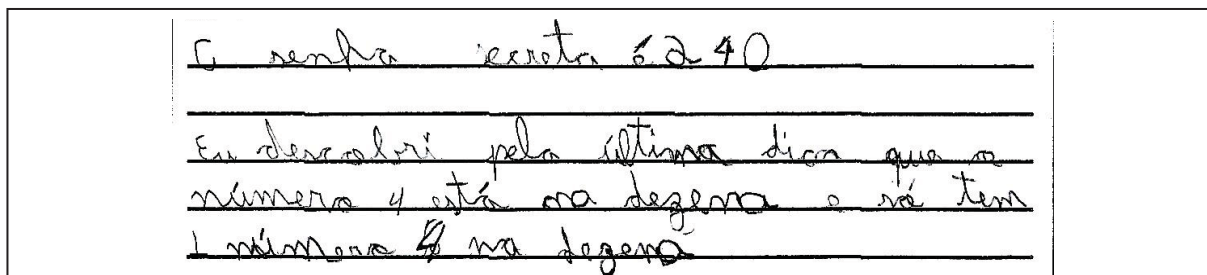 A senha secreta é a 40
Eu descobri pela última dica que o
número 4 está na dezena e só tem
1 número 4 na dezena